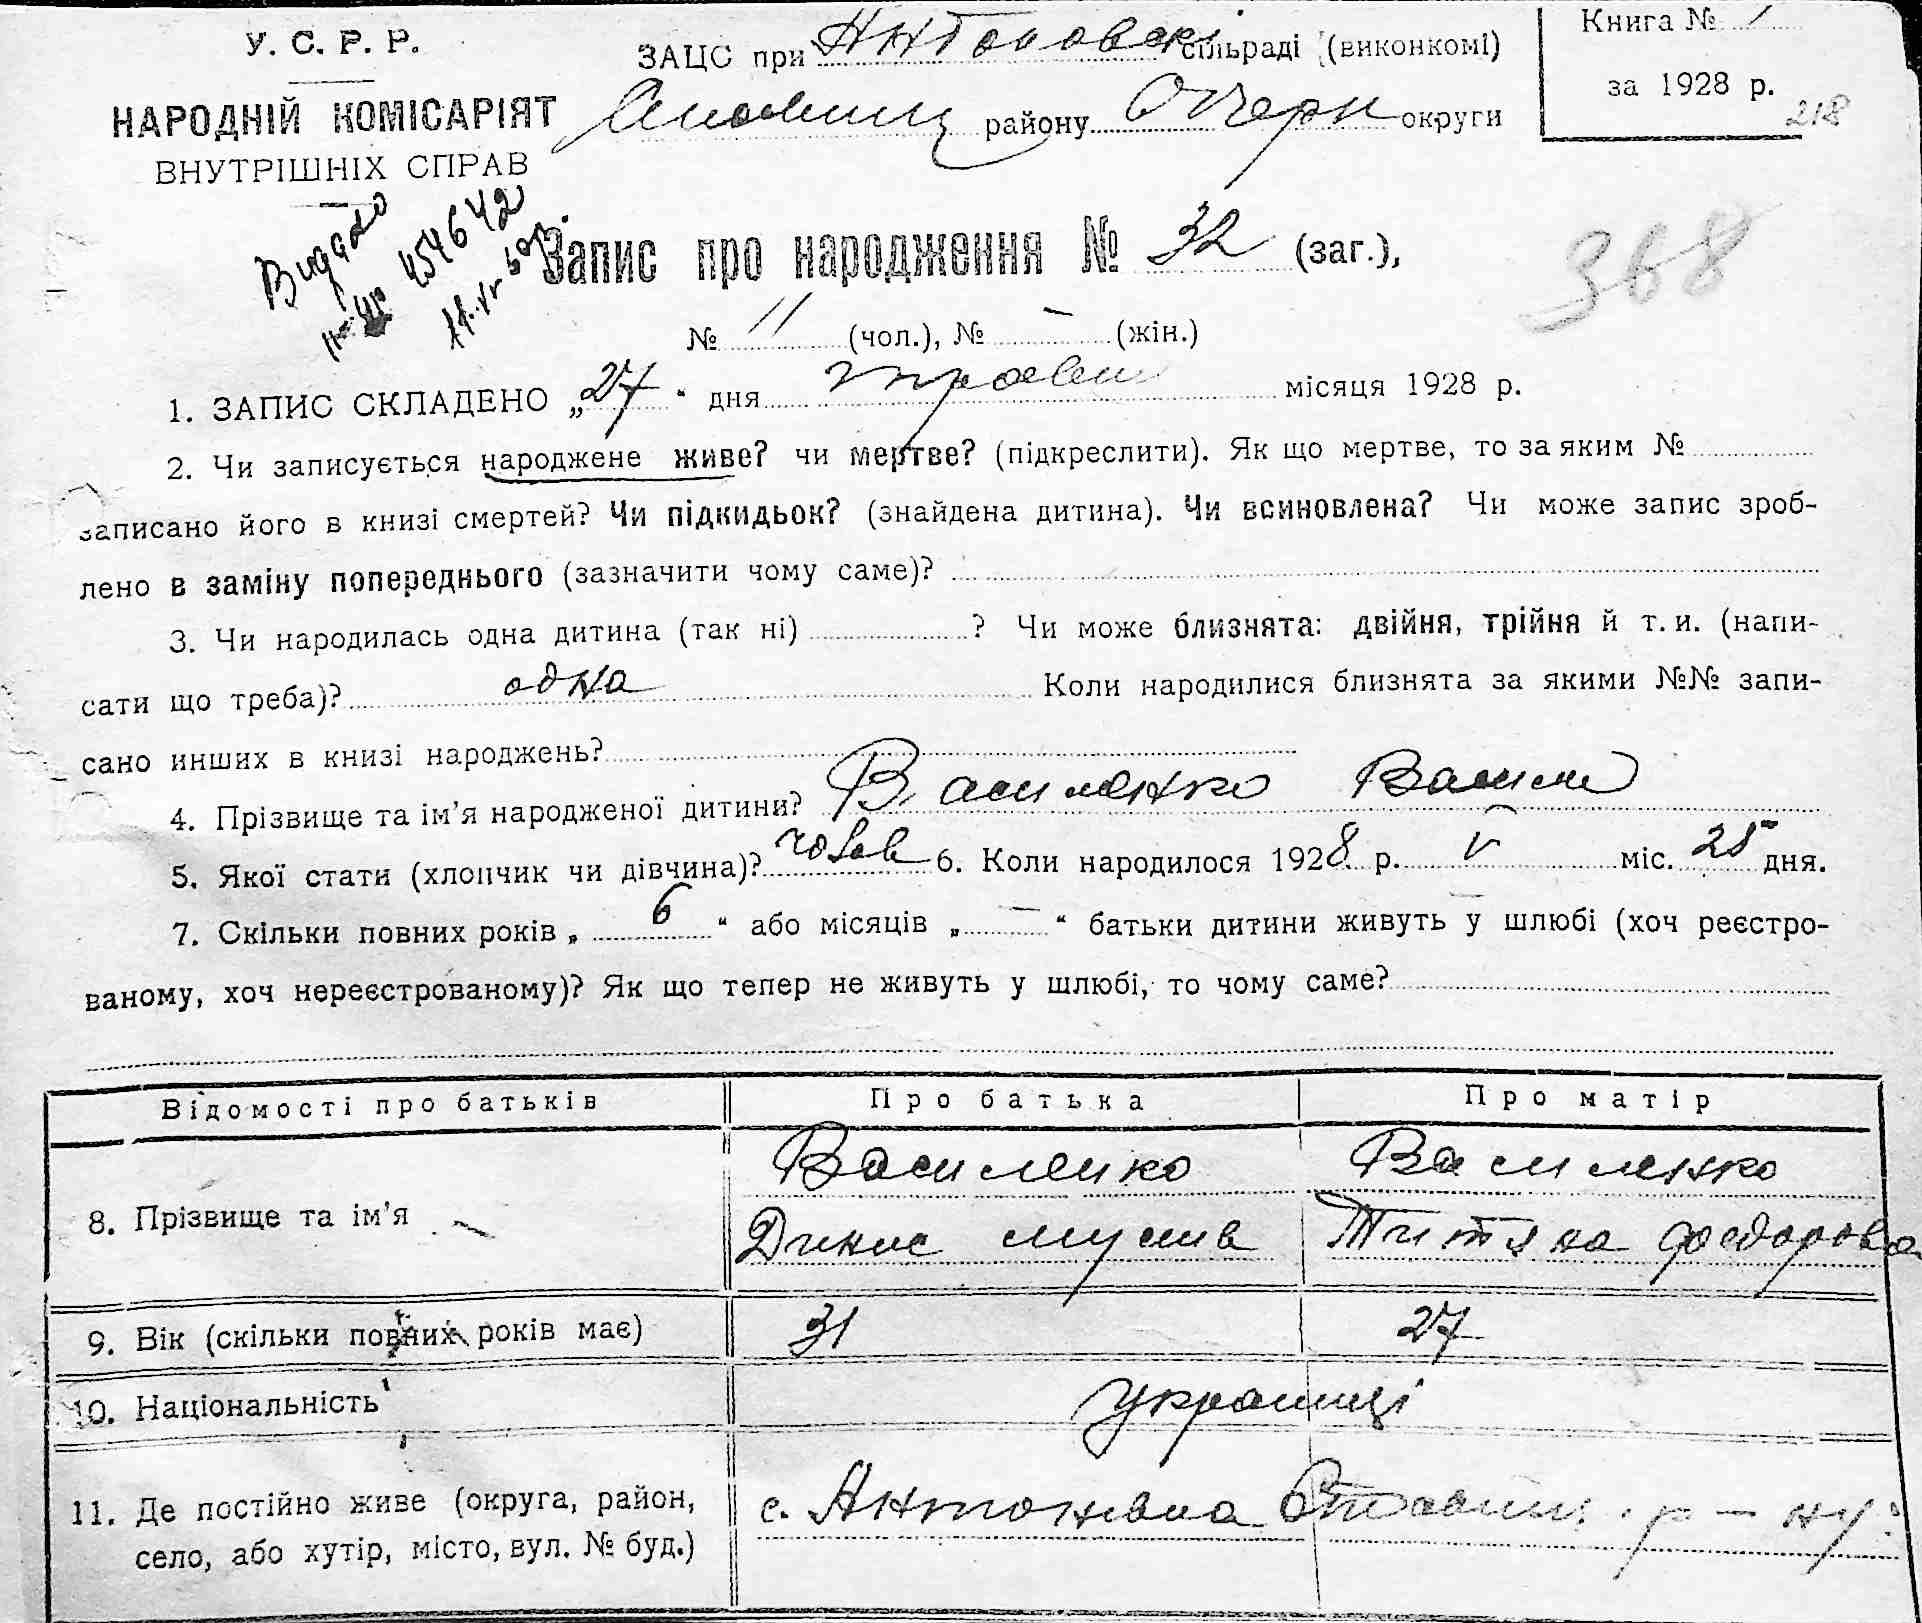 У. С. Р. Р.
НАРОДНІЙ КОМІСАРІЯТ
ВНУТРІШНІХ СПРАВ
ЗАЦС при Антоновскі сільраді (виконкомі)
району округи
Книга № 1
за 1928 р.
218
454642
Запис про народження № 32 (заг.),
368
№ 11 (чол.), № – (жін.)
1. ЗАПИС СКЛАДЕНО „27“ дня травня місяця 1928 р.
2. Чи записується народжене живе? чи мертве? (підкреслити). Як що мертве, то за яким №
записано його в книзі смертей? Чи підкидьок? (знайдена дитина). Чи всиновлена? Чи може запис зроб-
лено в заміну попереднього (зазначити чому саме)?
3. Чи народилась одна дитина (так ні) ? Чи може близнята: двійня, трійня й т. и. (напи-
сати що треба)? одна Коли народилися близнята за якими №№ запи-
сано инших в книзі народжень?
4. Прізвище та ім’я народженої дитини? Василенко
5. Якої стати (хлопчик чи дівчина)? чолов 6. Коли народилося 1928 р. V міс. 25 дня.
7. Скільки повних років „ 6 “ або місяців „ – “ батьки дитини живуть у шлюбі (хоч реєстро-
ваному, хоч нереєстрованому)? Як що тепер не живуть у шлюбі, то чому саме?
Відомості про батьків Про батька Про матір
8. Прізвище та ім’я Василенко Василенко
Динис Мусив Титяна Федорова
9. Вік (скільки повних років має) 31 27
10. Національність Українці
11. Де постійно живе (округа, район, с. Антонівка р–ну
село, або хутір, місто, вул. № буд.)